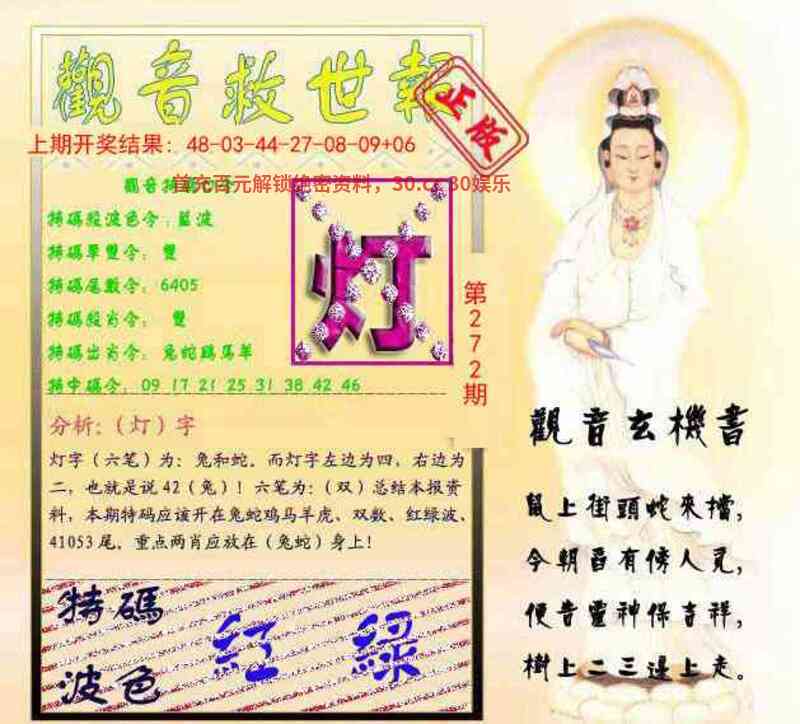 觀音救世報
正版
上期开奖结果：48-03-44-27-08-09+06
首充百元解锁绝密资料，30.cc 30娱乐
特碼殺波色令：藍波
特碼單雙令：雙
特碼尾數令：6405
特碼殺肖令：雙
特碼出肖令：兔蛇鷄馬羊
特中碼令：09 17 21 25 31 38 42 46
灯
第272期
分析：（灯）字
灯字（六笔）为：兔和蛇。而灯字左边为四，右边为
二，也就是说42（兔）！六笔为：（双）总结本报资
料，本期特码应该开在兔蛇鸡马羊虎、双数、红绿波、
41053尾。重点两肖应放在（兔蛇）身上！
特碼
波色
紅 綠
觀音玄機書
鼠上街頭蛇來擋，
今朝晉有傍人見，
便告靈神保吉祥，
樹上二三邊上走。